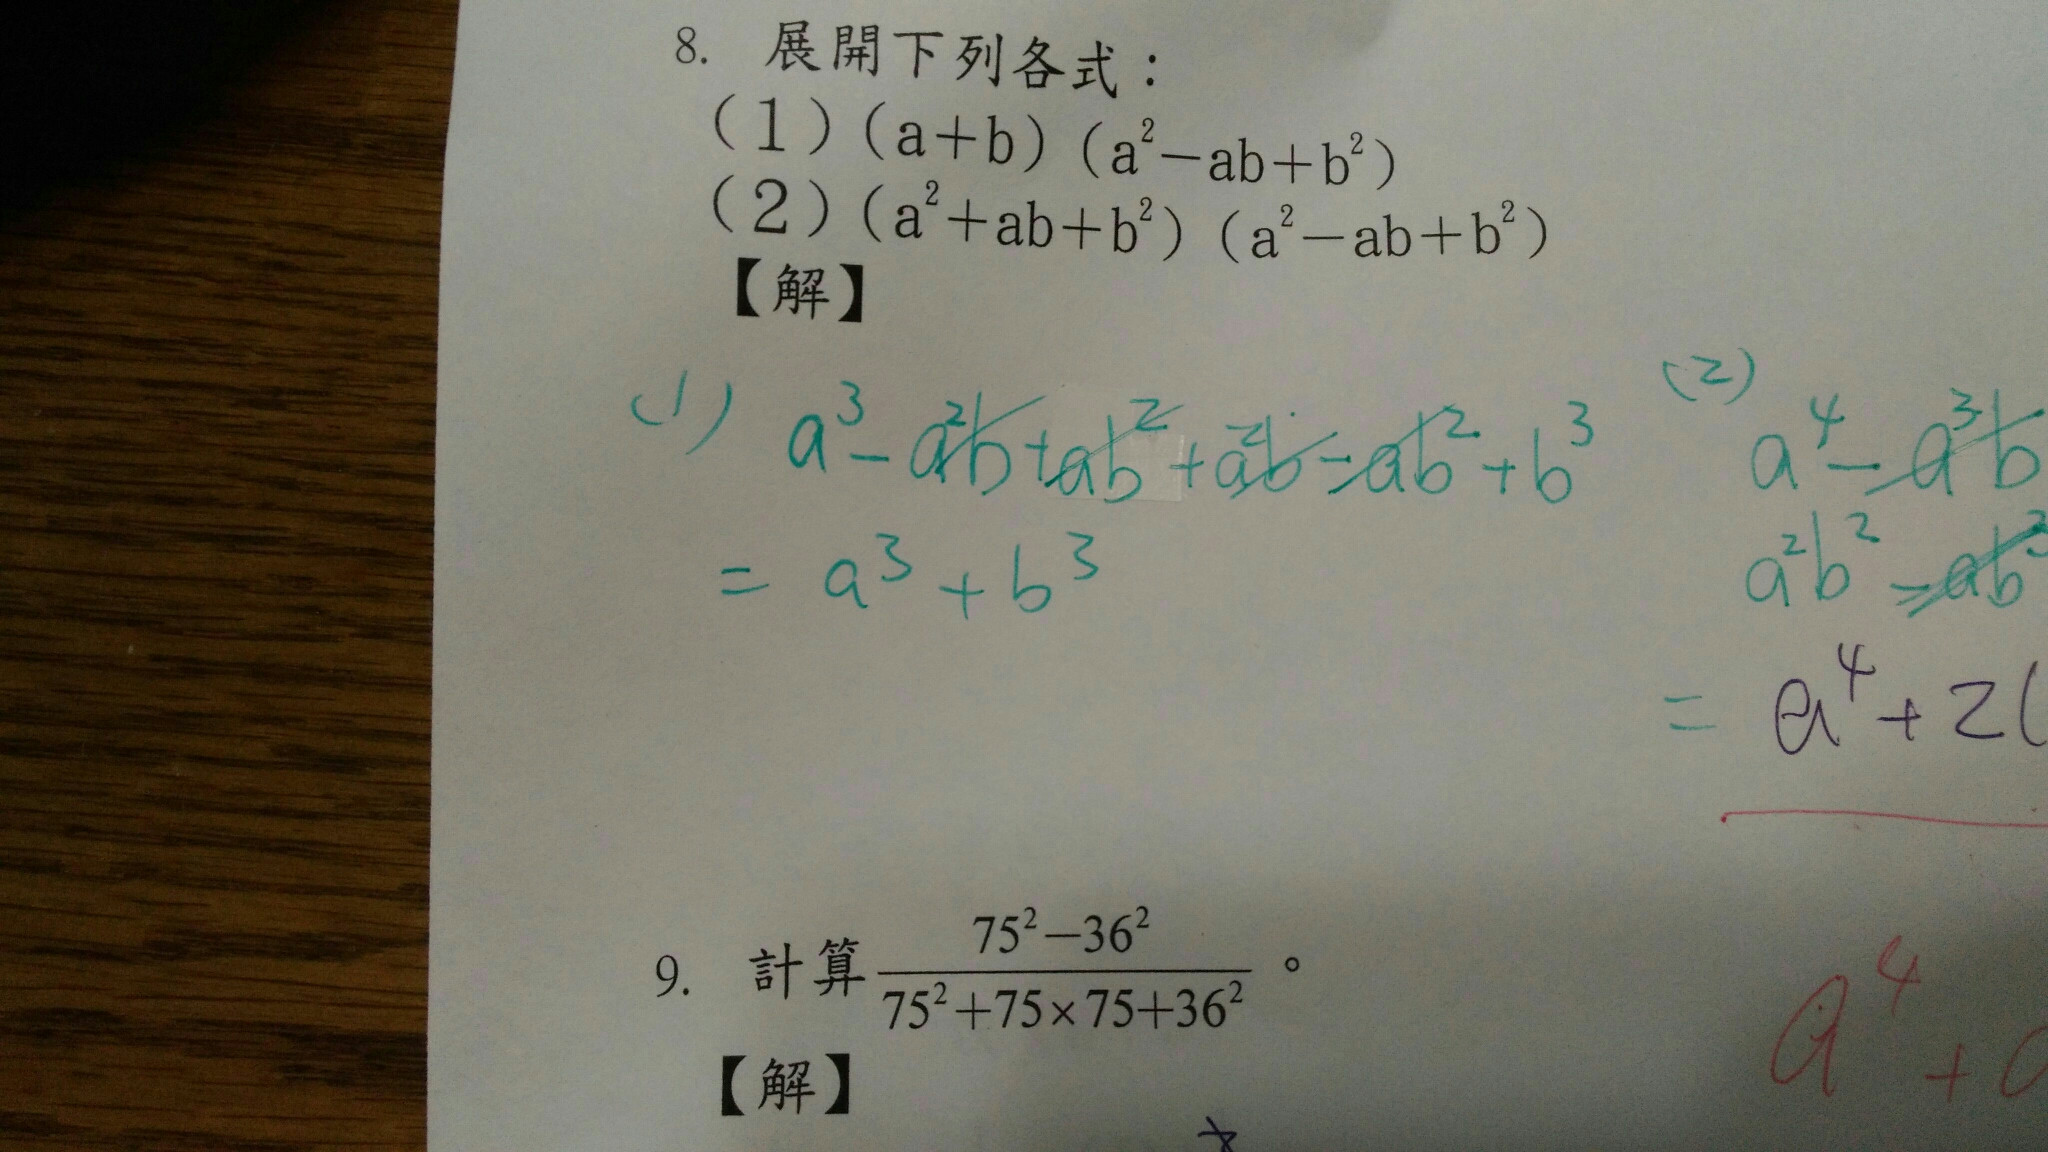 8. 展開下列各式：
(1)(a+b)(a²−ab+b²)
(2)(a²+ab+b²)(a²−ab+b²)
【解】
(1) a³−a²b+ab²+a²b−ab²+b³
= a³+b³
(2) a⁴−a³b
a²b²−ab³
= a⁴+2
9. 計算 (75²−36²)/(75²+75×75+36²)。
【解】
a⁴+